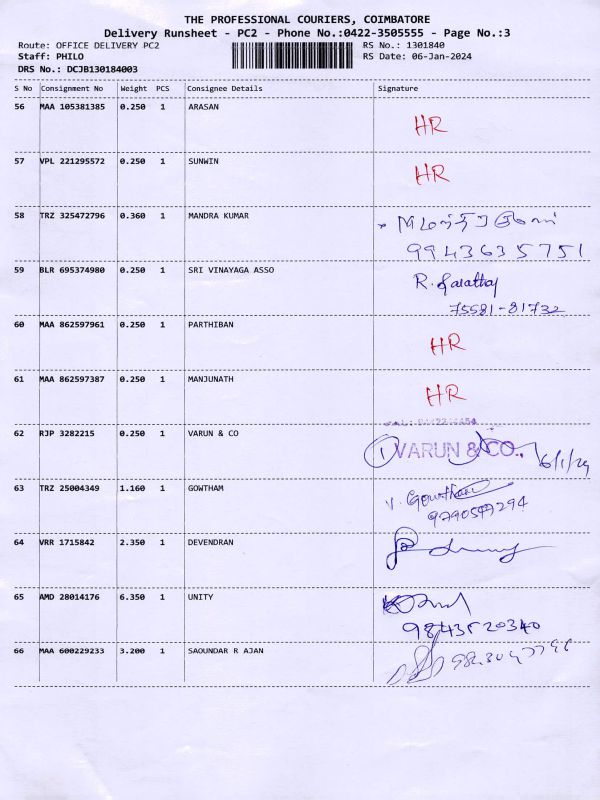 THE PROFESSIONAL COURIERS, COIMBATORE
Delivery Runsheet - PC2 - Phone No.:0422-3505555 - Page No.:3
Route: OFFICE DELIVERY PC2 RS No.: 1301840
Staff: PHILO RS Date: 06-Jan-2024
DRS No.: DCJB130184003
S No Consignment No Weight PCS Consignee Details Signature
56 MAA 105381385 0.250 1 ARASAN HR
57 VPL 221295572 0.250 1 SUNWIN HR
58 TRZ 325472796 0.360 1 MANDRA KUMAR
9943635751
59 BLR 695374980 0.250 1 SRI VINAYAGA ASSO R.
75581-81732
60 MAA 862597961 0.250 1 PARTHIBAN HR
61 MAA 862597387 0.250 1 MANJUNATH HR
62 RJP 3282215 0.250 1 VARUN & CO 1 VARUN & CO., 6/1/24
63 TRZ 25004349 1.160 1 GOWTHAM V. Gowtham
64 VRR 1715842 2.350 1 DEVENDRAN
65 AMD 28014176 6.350 1 UNITY
9843520340
66 MAA 600229233 3.200 1 SAOUNDAR R AJAN